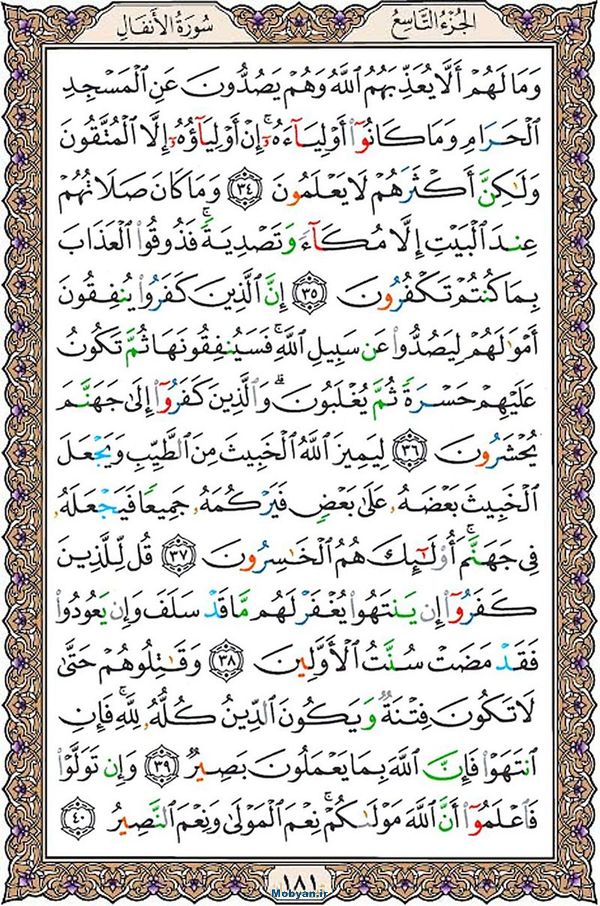 الجُزءُ التَّاسِعُ سُورَةُ الأَنفَالِ
وَمَا لَهُمْ أَلَّا يُعَذِّبَهُمُ ٱللَّهُ وَهُمْ يَصُدُّونَ عَنِ ٱلْمَسْجِدِ
ٱلْحَرَامِ وَمَا كَانُوٓا۟ أَوْلِيَآءَهُۥٓ ۚ إِنْ أَوْلِيَآؤُهُۥٓ إِلَّا ٱلْمُتَّقُونَ
وَلَٰكِنَّ أَكْثَرَهُمْ لَا يَعْلَمُونَ ٣٤ وَمَا كَانَ صَلَاتُهُمْ
عِندَ ٱلْبَيْتِ إِلَّا مُكَآءً وَتَصْدِيَةً ۚ فَذُوقُوا۟ ٱلْعَذَابَ
بِمَا كُنتُمْ تَكْفُرُونَ ٣٥ إِنَّ ٱلَّذِينَ كَفَرُوا۟ يُنفِقُونَ
أَمْوَٰلَهُمْ لِيَصُدُّوا۟ عَن سَبِيلِ ٱللَّهِ ۚ فَسَيُنفِقُونَهَا ثُمَّ تَكُونُ
عَلَيْهِمْ حَسْرَةً ثُمَّ يُغْلَبُونَ ۗ وَٱلَّذِينَ كَفَرُوٓا۟ إِلَىٰ جَهَنَّمَ
يُحْشَرُونَ ٣٦ لِيَمِيزَ ٱللَّهُ ٱلْخَبِيثَ مِنَ ٱلطَّيِّبِ وَيَجْعَلَ
ٱلْخَبِيثَ بَعْضَهُۥ عَلَىٰ بَعْضٍ فَيَرْكُمَهُۥ جَمِيعًا فَيَجْعَلَهُۥ
فِى جَهَنَّمَ ۚ أُو۟لَٰٓئِكَ هُمُ ٱلْخَٰسِرُونَ ٣٧ قُل لِّلَّذِينَ
كَفَرُوٓا۟ إِن يَنتَهُوا۟ يُغْفَرْ لَهُم مَّا قَدْ سَلَفَ وَإِن يَعُودُوا۟
فَقَدْ مَضَتْ سُنَّتُ ٱلْأَوَّلِينَ ٣٨ وَقَٰتِلُوهُمْ حَتَّىٰ
لَا تَكُونَ فِتْنَةٌ وَيَكُونَ ٱلدِّينُ كُلُّهُۥ لِلَّهِ ۚ فَإِنِ
ٱنتَهَوْا۟ فَإِنَّ ٱللَّهَ بِمَا يَعْمَلُونَ بَصِيرٌ ٣٩ وَإِن تَوَلَّوْا۟
فَٱعْلَمُوٓا۟ أَنَّ ٱللَّهَ مَوْلَىٰكُمْ ۚ نِعْمَ ٱلْمَوْلَىٰ وَنِعْمَ ٱلنَّصِيرُ ٤٠
١٨١
Mobyan.ir